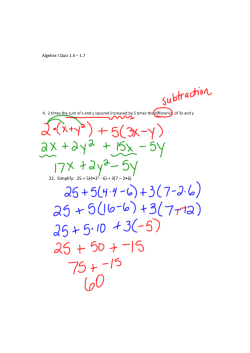 Algebra I Quiz 1.3 – 1.7
subtraction
4. 2 times the sum of x and y squared increased by 5 times the difference of 3x and y
2•(x+y²) + 5(3x-y)
2x + 2y² + 15x - 5y
17x + 2y² - 5y
22. Simplify: 25 + 5(4•2² - 6) + 3(7 – 2•6)
25 + 5(4·4-6) + 3(7-2·6)
25 + 5(16-6) + 3(7-12)
25 + 5·10 + 3(-5)
25 + 50 + -15
75 + -15
60